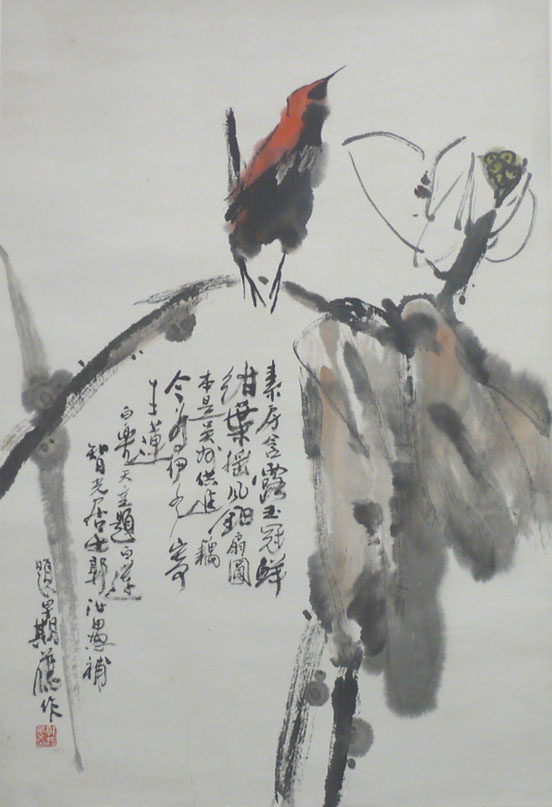 素房含露玉冠鮮
紺葉搖風鈿扇圓
本是吳州供進藕
今為伊水寄
生蓮
白樂天重題白蓮
智光居士郭汝愚補
作